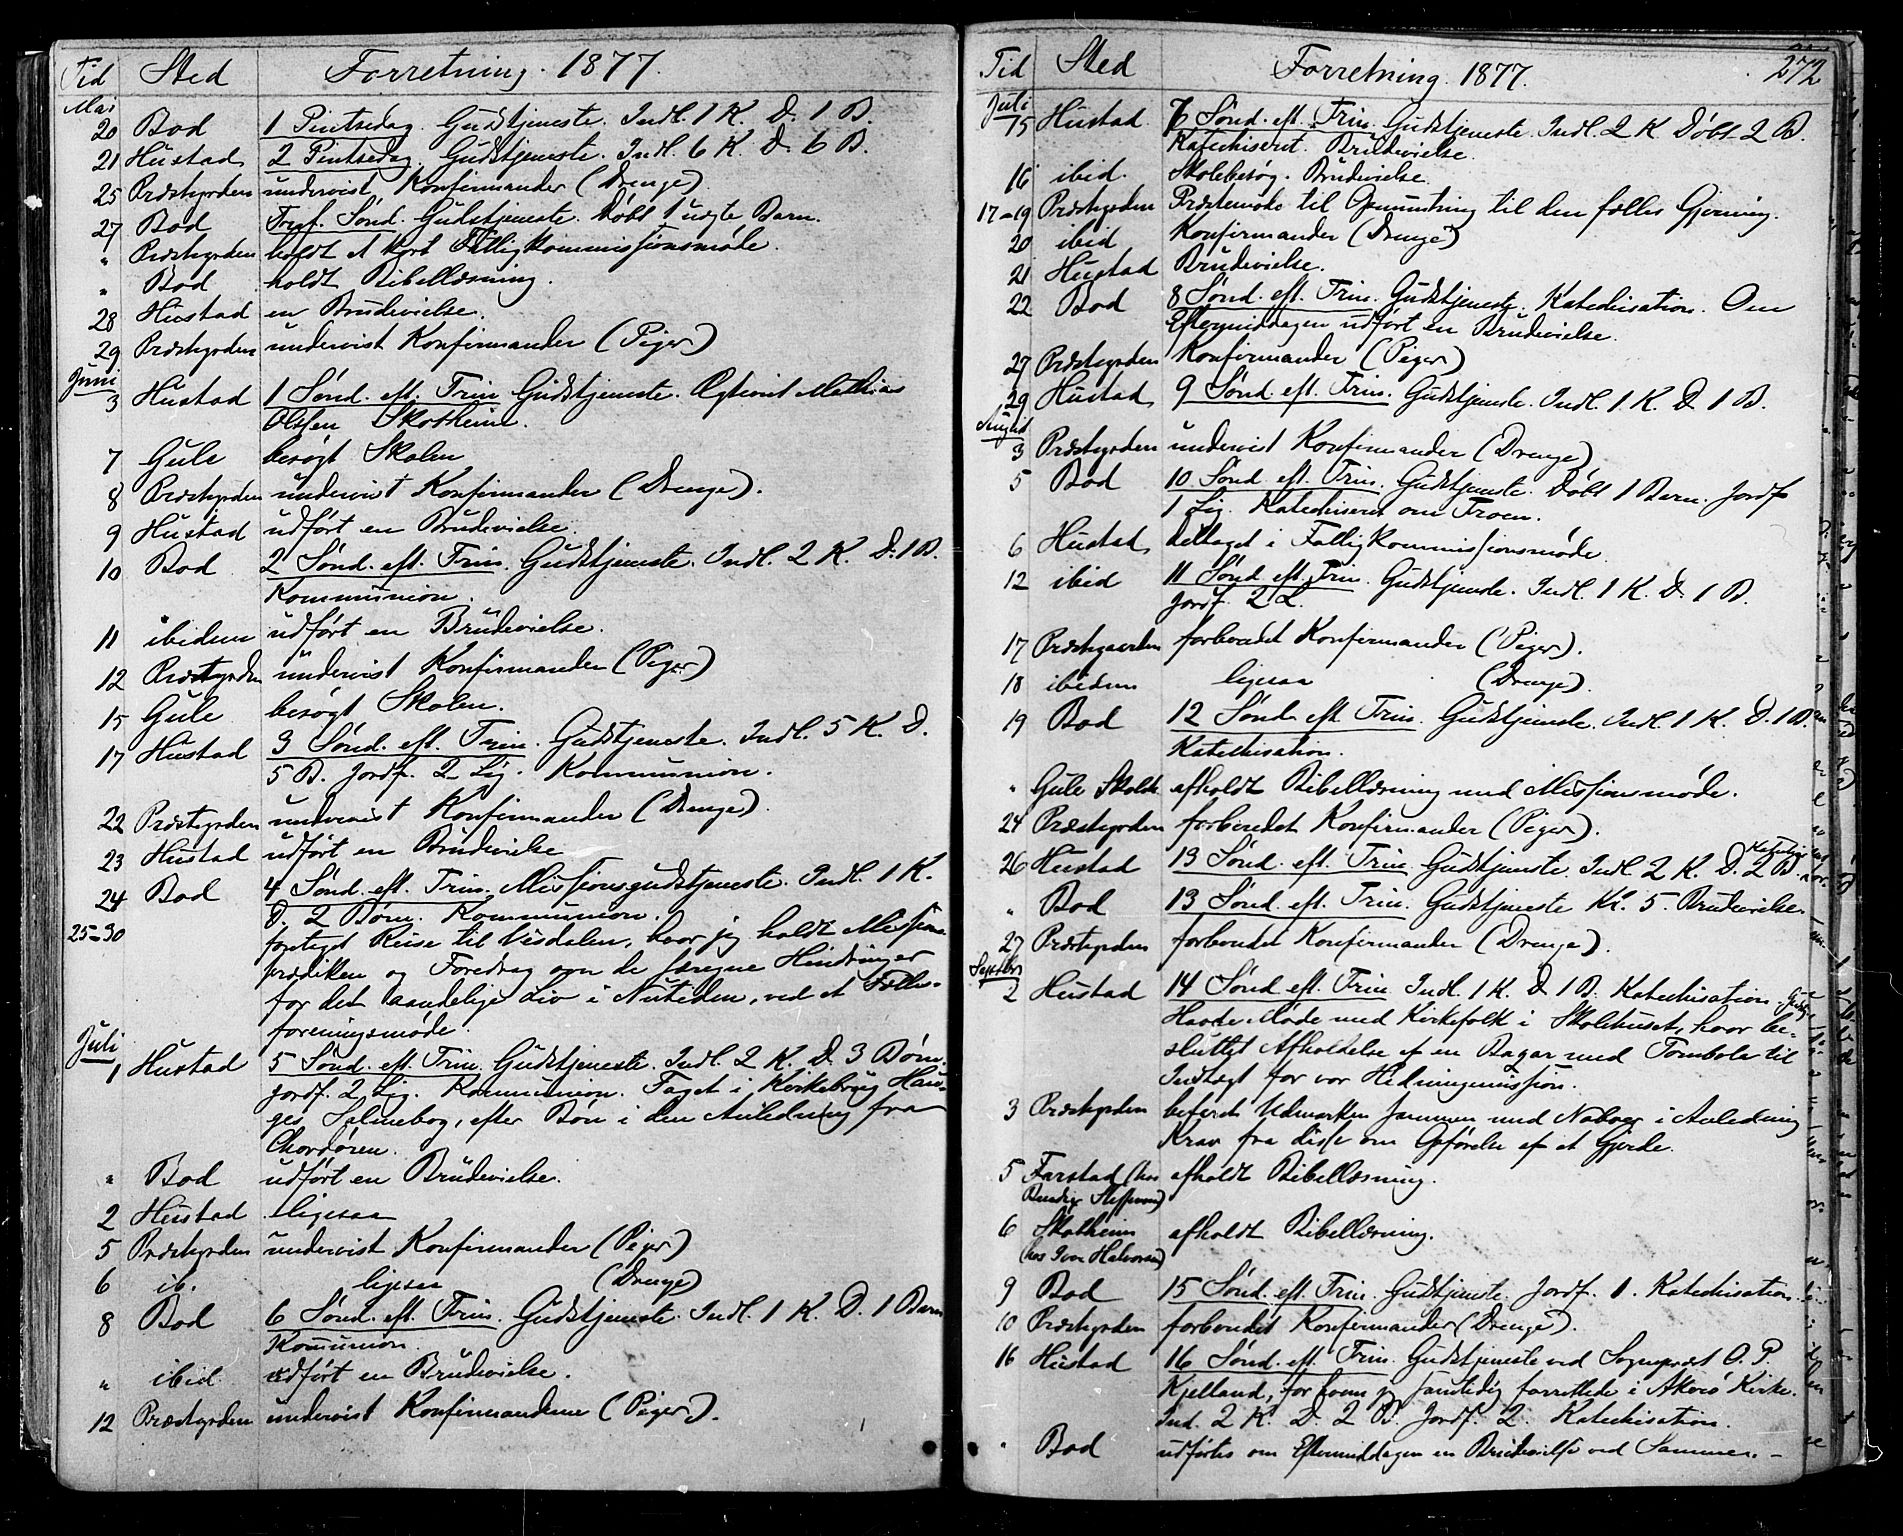 Tid Sted Forretning. 1877.
Mai
20 Bod 1 Pintsedag. Gudstjeneste. Indl. 1 K. D. 1 B.
21 Hustad 2 Pintsedag. Gudstjeneste. Indl. 6 K. D. 6 B.
25 Præstegrden undervist Konfirmander (Drenge).
27 Bod Tref. Sønd. Gudstjeneste. Døbt 1 uegte Barn.
" Præstegrden holdt et kort Fattigkommissionsmøde.
" Bod holdt Bibellæsning.
28 Hustad en Brudevielse.
29 Præstegrden undervist Konfirmander (Piger)
Juni
3 Hustad 1 Sønd. eft. Trin. Gudstjeneste. Ægteviet Mathias
Olsen Skotheim.
7 Gule besøgt Skolen
8 Præstegrden undervist Konfirmander (Drenge).
9 Hustad udført en Brudevielse.
10 Bod 2 Sønd. eft. Trin. Gudstjeneste. Indl. 2 K. D. 1 B.
Kommunion.
11 ibidem udført en Brudevielse.
12 Præstegrden undervist Konfirmander (Piger)
15 Gule besøgt Skolen.
17 Hustad 3 Sønd. eft. Trin. Gudstjeneste. Indl. 5 K. D.
5 B. Jordf. 2 Lig. Kommunion.
22 Præstegrden undervist Konfirmander (Drenge).
23 Hustad udført en Brudevielse
24 Bod 4 Sønd. eft. Trin. Missionsgudstjeneste. Indl. 1 K.
D. 2 Børn. Kommunion.
25-30 foretaget Reise til Visdalen, hvor jeg holdt Missions
prædiken og Foredrag om de færegne Hindringer
for det aandelige Liv i Nutiden, ved et Fælles-
foreningsmøde.
Juli
1 Hustad 5 Sønd. eft. Trin. Gudstjeneste. Indl. 2 K. D. 3 Børn.
Jordf. 2 Lig. Kommunion. Taget i Kirkebrug Hau-
ges Salmebog, efter Bøn i den Anledning fra
Chordøren.
" Bod udført en Brudevielse.
2 Hustad ligesaa
5 Præstegrden undervist Konfirmander (Piger)
6 ib. ligesaa (Drenge)
8 Bod 6 Sønd. eft. Trin. Gudstjeneste. Indl. 1 K. D. 1 Barn
Kommunion.
" ibid udført en Brudevielse.
12 Præstegrden undervist Konfirmanderne (Piger).
Tid Sted Forretning. 1877. 272
Juli
15 Hustad 7 Sønd. eft. Trin. Gudstjeneste. Indl. 2 K Døbt 2 B.
Katechiseret. Brudevielse.
16 ibid. Skolebesøg. Brudevielse.
17-19 Præstegrden Præstemøde til Opmuntring til den fælles Gjerning.
20 ibid Konfirmander (Drenge)
21 Hustad Brudevielse.
22 Bod 8 Sønd. eft. Trin. Gudstjeneste. Katechisation. Om
Eftermiddagen udført en Brudevielse.
27 Præstegrden Konfirmander (Piger)
29 Hustad 9 Sønd. eft. Trin. Gudstjeneste. Indl. 1 K. D. 1 B.
August
3 Præstegrden undervist Konfirmander (Drenge)
5 Bod 10 Sønd. eft. Trin. Gudstjeneste. Døbt 1 Barn. Jordf
1 Lig. Katechiseret om Troen.
6 Hustad deltaget i Fattigkommissionsmøde.
12 ibid 11 Sønd eft. Trin. Gudstjeneste. Indl. 1 K. D. 1 B.
Jordf. 2 L.
17 Præstegaarden forberedet Konfirmander (Piger).
18 ibidem ligesaa (Drenge).
19 Bod 12 Sønd. eft. Trin. Gudstjeneste. Indl. 1 K. D. 1 B.
Katechisation.
" Gule Skoleh. afholdt Bibellæsning med Missionsmøde.
24 Præstegrden forberedet Konfirmander (Piger).
26 Hustad 13 Sønd. eft. Trin. Gudstjeneste. Indl 2 K. D. 2 B.
" Bod 13 Sønd. eft. Trin. Gudstjeneste Kl. 5. Brudevielse.
27 Præstegrden forberedet Konfirmander (Drenge).
Septbr
2 Hustad 14 Sønd. eft. Trin Indl. 1 K. D. 1 B. Katechisation.
Havde Møde med Kirkefolk i Skolehuset, hvor be-
sluttet Afholdelse af en Bazar med Tombola til
Indtægt for vor Hedningemission.
3 Præstegrden befaret Udmarken sammen med Naboer i Anledning
Krav fra disse om Opførelse af et Gjerde.
5 Farstad (hos afholdt Bibellæsning.
Steffensen)
6 Skotheim afholdt Bibellæsning.
(hos Iver Halvorsen)
9 Bod 15 Sønd. eft. Trin. Gudstjeneste. Jordf. 1. Katechisation.
10 Præstegrden forberedet Konfirmander (Drenge).
16 Hustad 16 Sønd. eft. Trin. Gudstjeneste ved Sognepræst O. P.
Kjelland, for hvem jeg samtidig forrettede i Akerø Kirke.
Ind. 2 K. D. 2 B. Jordf. 2. Katechisation.
" Bod udførtes om Eftermiddagen en Brudevielse ved Samme. -